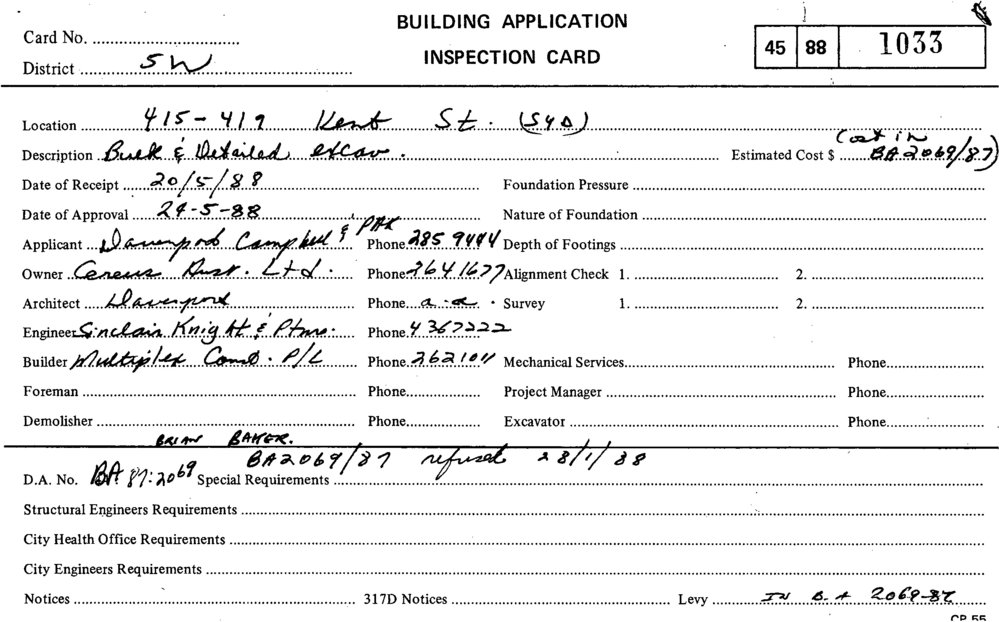 BUILDING APPLICATION
INSPECTION CARD
Card No.
District SW
45 88 1033
Location 415-419 Kent St. (SYD)
Description Bulk & Detailed excav. Estimated Cost $ (cost in BA 2069/87)
Date of Receipt 20/5/88 Foundation Pressure
Date of Approval 24-5-88 Nature of Foundation
Applicant Davenport Campbell & Phone 285 9444 Depth of Footings
Owner Aust. Ltd. Phone 264 1677 Alignment Check 1. 2.
Architect Davenport Phone a.a. Survey 1. 2.
Engineer Sinclair Knight & Ptnrs. Phone 4367222
Builder Multiplex Const. P/L Phone 2621011 Mechanical Services Phone
Foreman Phone Project Manager Phone
Demolisher Phone Excavator Phone
BRIAN BAKER.
BA2069/87 refused 28/1/88
D.A. No. BA 87:2069 Special Requirements
Structural Engineers Requirements
City Health Office Requirements
City Engineers Requirements
Notices 317D Notices Levy IN B.A 2069-87
CP 55